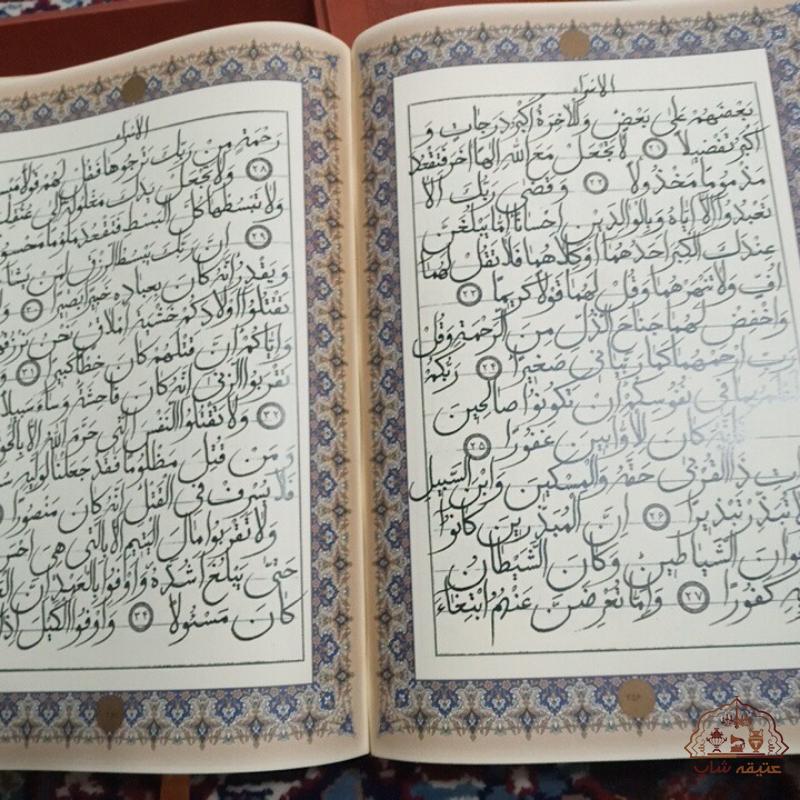 الاسراء
بَعْضَهُمْ عَلَى بَعْضٍ وَلَلآخِرَةُ أَكْبَرُ دَرَجَاتٍ وَ
أَكْبَرُ تَفْضِيلاً ٢١ لاَ تَجْعَلْ مَعَ اللهِ إِلهًا آخَرَ فَتَقْعُدَ
مَذْمُومًا مَخْذُولاً ٢٢ وَقَضَى رَبُّكَ أَلاَّ
تَعْبُدُوا إِلاَّ إِيَّاهُ وَبِالْوَالِدَيْنِ إِحْسَانًا إِمَّا يَبْلُغَنَّ
عِنْدَكَ الْكِبَرَ أَحَدُهُمَا أَوْ كِلاَهُمَا فَلاَ تَقُلْ لَهُمَا
أُفٍّ وَلاَ تَنْهَرْهُمَا وَقُلْ لَهُمَا قَوْلاً كَرِيمًا ٢٣
وَاخْفِضْ لَهُمَا جَنَاحَ الذُّلِّ مِنَ الرَّحْمَةِ وَقُلْ
رَبِّ ارْحَمْهُمَا كَمَا رَبَّيَانِي صَغِيرًا ٢٤ رَبُّكُمْ
بِمَا فِي نُفُوسِكُمْ إِنْ تَكُونُوا صَالِحِينَ
فَإِنَّهُ كَانَ لِلأَوَّابِينَ غَفُورًا ٢٥
ذَا الْقُرْبَى حَقَّهُ وَالْمِسْكِينَ وَابْنَ السَّبِيلِ
وَلاَ تُبَذِّرْ تَبْذِيرًا ٢٦ إِنَّ الْمُبَذِّرِينَ كَانُوا
إِخْوَانَ الشَّيَاطِينِ وَكَانَ الشَّيْطَانُ
كَفُورًا ٢٧ وَإِمَّا تُعْرِضَنَّ عَنْهُمُ ابْتِغَاءَ
الاسراء
رَحْمَةٍ مِنْ رَبِّكَ تَرْجُوهَا فَقُلْ لَهُمْ قَوْلاً
٢٨ وَلاَ تَجْعَلْ يَدَكَ مَغْلُولَةً إِلَى
وَلاَ تَبْسُطْهَا كُلَّ الْبَسْطِ فَتَقْعُدَ مَلُومًا مَحْسُورًا
٢٩ إِنَّ رَبَّكَ يَبْسُطُ الرِّزْقَ لِمَنْ يَشَاءُ
وَيَقْدِرُ إِنَّهُ كَانَ بِعِبَادِهِ خَبِيرًا بَصِيرًا ٣٠
تَقْتُلُوا أَوْلاَدَكُمْ خَشْيَةَ إِمْلاَقٍ نَحْنُ
وَإِيَّاكُمْ إِنَّ قَتْلَهُمْ كَانَ خِطْأً كَبِيرًا ٣١
تَقْرَبُوا الزِّنَى إِنَّهُ كَانَ فَاحِشَةً وَسَاءَ سَبِيلاً
٣٢ وَلاَ تَقْتُلُوا النَّفْسَ الَّتِي حَرَّمَ اللهُ إِلاَّ
وَمَنْ قُتِلَ مَظْلُومًا فَقَدْ جَعَلْنَا لِوَلِيِّهِ
فَلاَ يُسْرِفْ فِي الْقَتْلِ إِنَّهُ كَانَ مَنْصُورًا
وَلاَ تَقْرَبُوا مَالَ الْيَتِيمِ إِلاَّ بِالَّتِي هِيَ
حَتَّى يَبْلُغَ أَشُدَّهُ وَأَوْفُوا بِالْعَهْدِ إِنَّ
كَانَ مَسْئُولاً ٣٤ وَأَوْفُوا الْكَيْلَ إِذَا
عتیقه شاپ